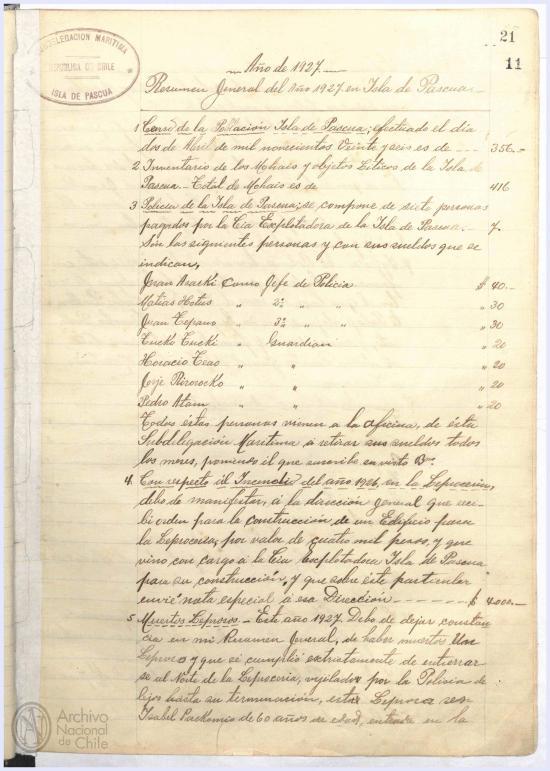 21
11
SUBDELEGACION MARITIMA
REPUBLICA DE CHILE
ISLA DE PASCUA
Año de 1927.
Resumen General del Año 1927 en Isla de Pascua
1 Censo de la Población Isla de Pascua; efectuado el día
dos de Abril de mil novecientos Veinte y seis es de - 356.-
2 Inventario de los Mohais y objetos Liticos de la Isla de
Pascua. - Total de Mohais es de 416
3 Policia de la Isla de Pascua; se compone de siete personas
pagados por la Cia Explotadora de la Isla de Pascua. - 7.
Son las siguientes personas y con sus sueldos que se
indican,
Juan Araki Como Jefe de Policia $ 40.-
Matias Hotus " 2º " " " 30
Juan Tepano " 3º " " " 30
Tucko Tucki " Guardian " 20
Horacio Teao " " " 20
Jorje Rirorocko " " " 20
Pedro Atam " " " 20
Todos éstas personas vienen a la oficina, de ésta
Subdelegación Maritima a retirar sus sueldos todos
los meses, poniendo il que suscribe su visto Bº
4. Con respecto il Incendio del año 1926, en la Leproceria,
debo de manifestar, á la dirección General que reci-
bi orden para la construcción de un Edificio para
la Leproceria, por valor de cuatro mil pesos, y que
vino con cargo á la Cia Explotadora Isla de Pascua
para su construcción, y que sobre éste particular
envié nota especial á esa Dirección - - - - $ 4.000.-
5. Muertos Leprosos - Este año 1927. Debo de dejar constan
cia en mi Resumen General, de haber muertos Un
Leproso y que se cumplió extrictamente de enterrar
se al Norte de la Leproceria, vigilados por la Policia de
lejos hasta su terminación, esta Leprosa
Isabel Packomio de 60 años de edad, en la
Archivo
Nacional
de Chile